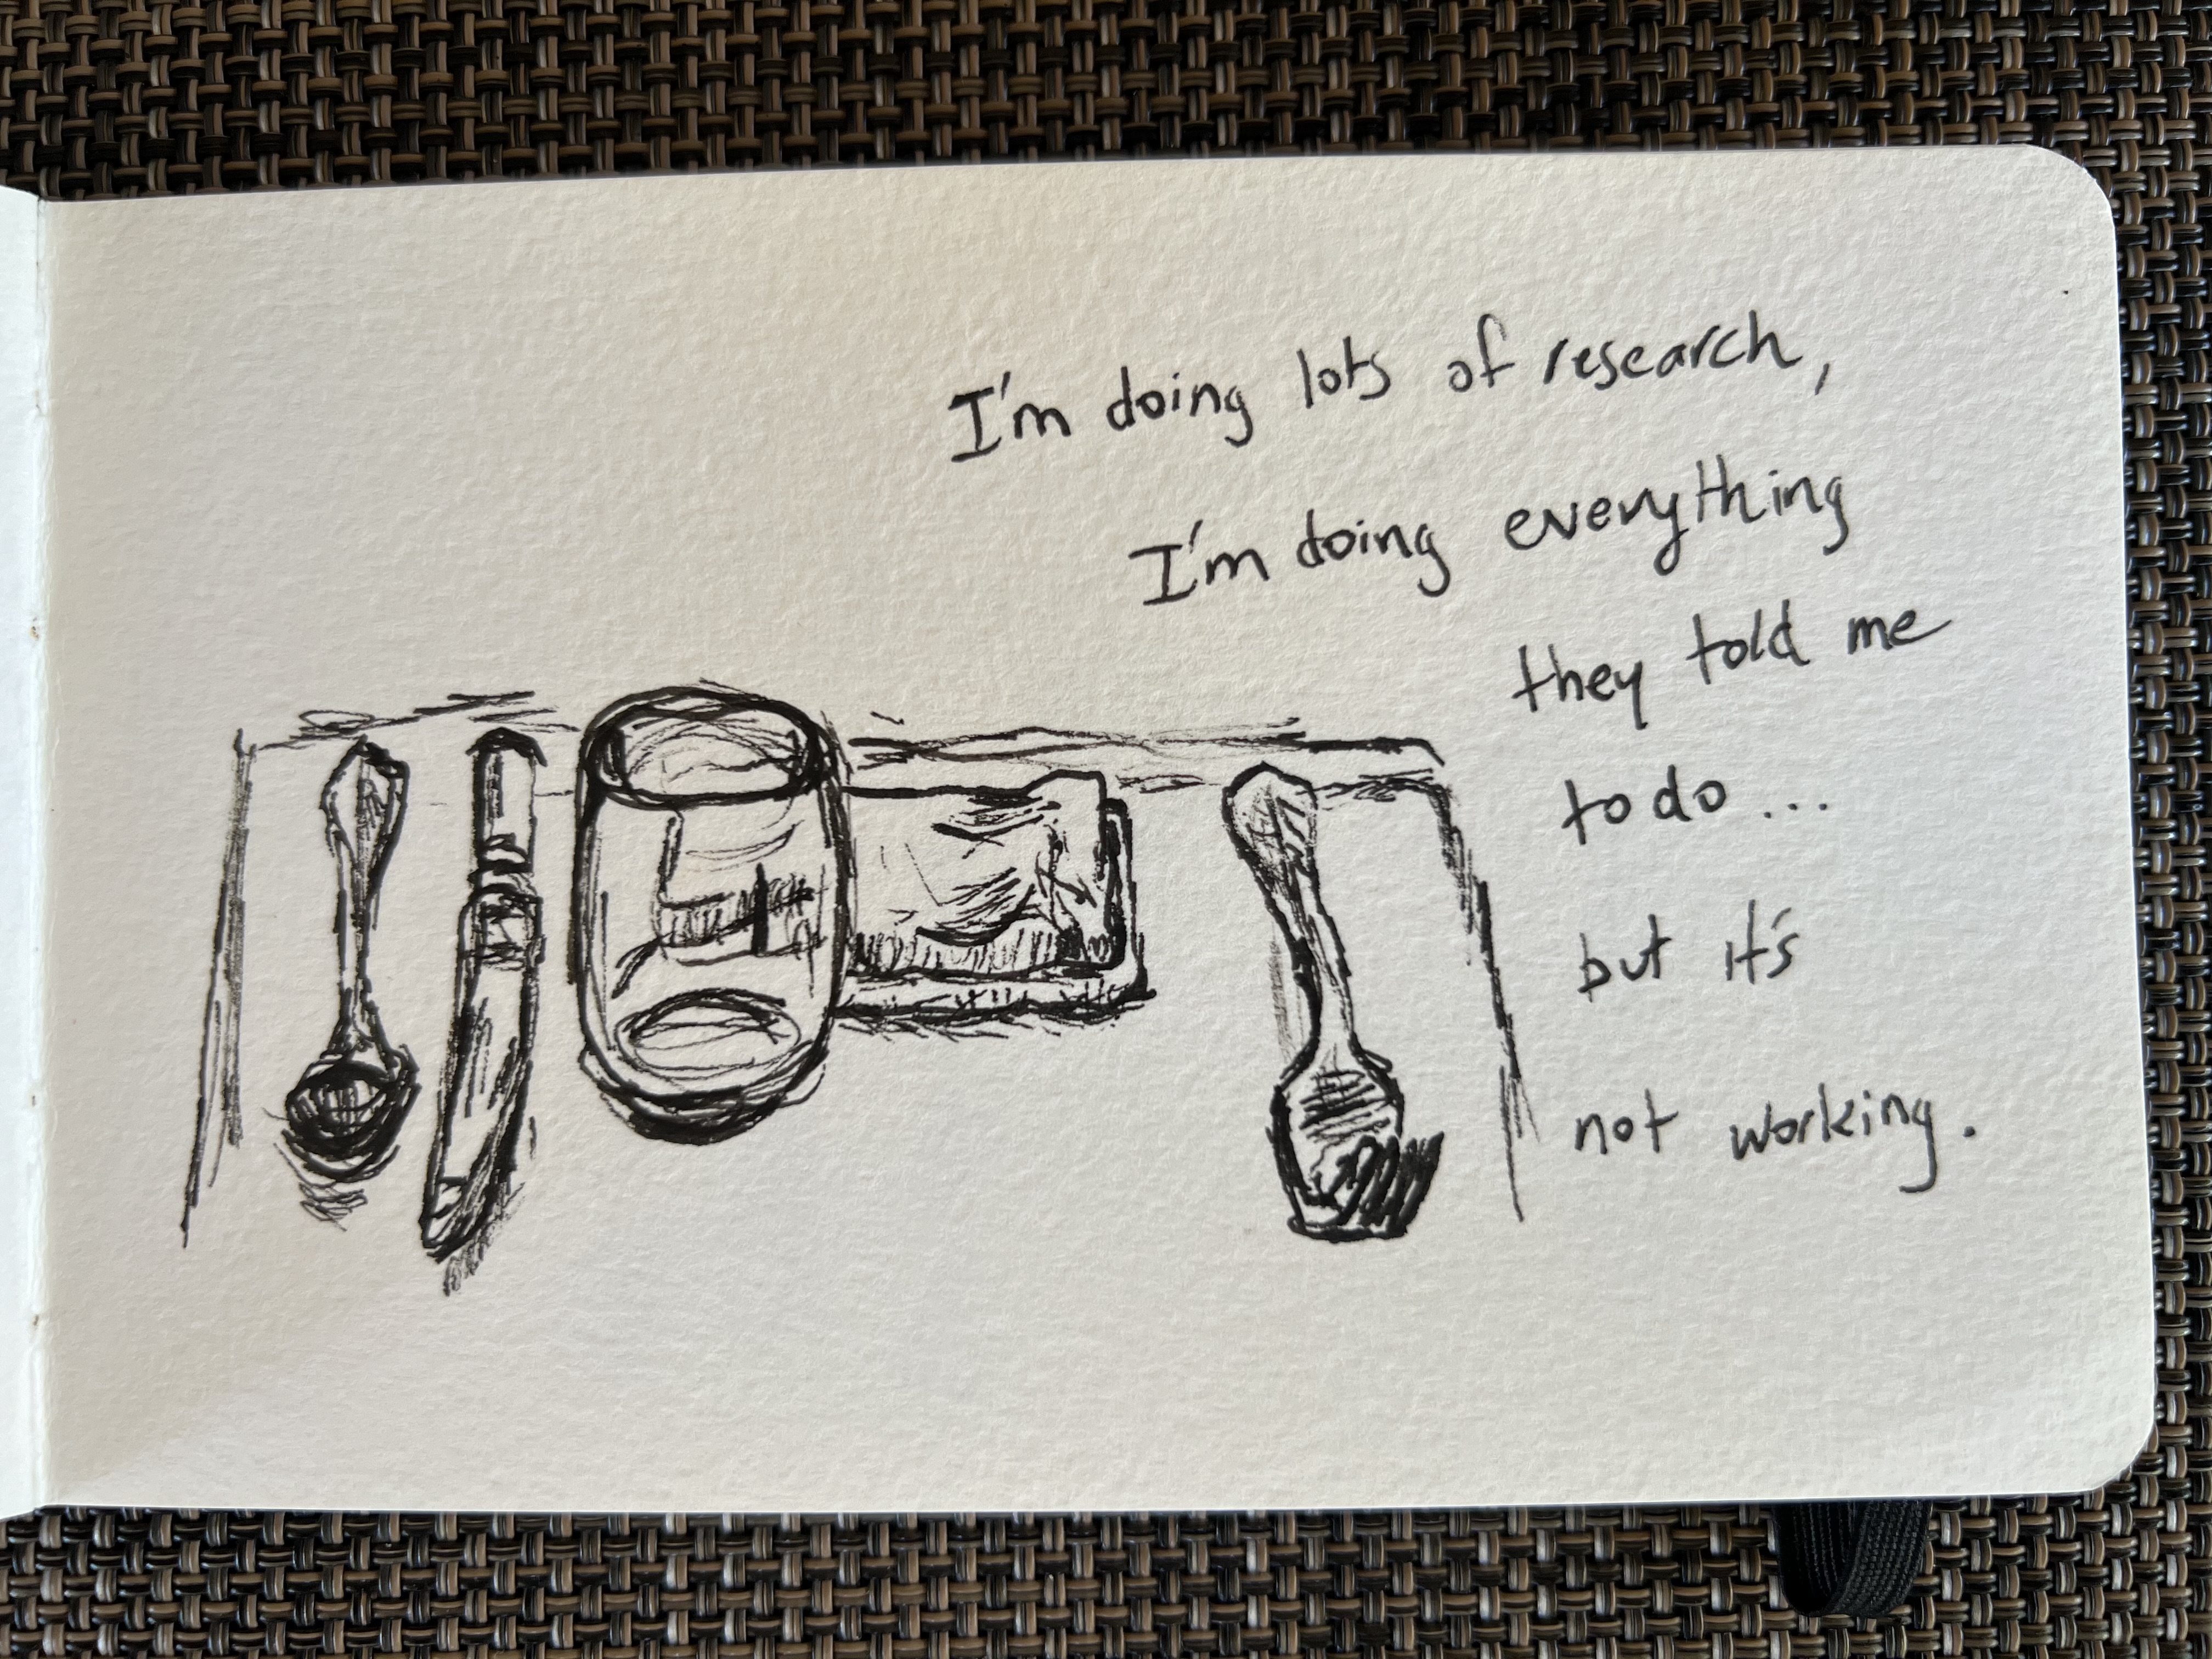 I'm doing lots of research,
I'm doing everything
they told me
to do...
but it's
not working.